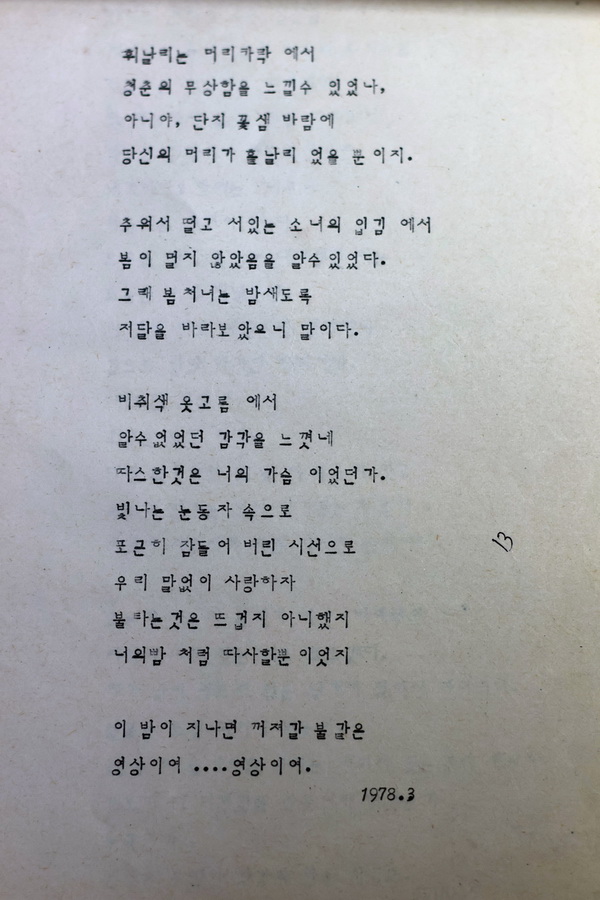 휘날리는 머리카락 에서
청춘의 무상함을 느낄수 있었나,
아니야, 단지 꽃샘 바람에
당신의 머리가 흩날리 었을 뿐이지.
추워서 떨고 서있는 소녀의 입김 에서
봄이 멀지 않았음을 알수있었다.
그래 봄처녀는 밤새도록
저달을 바라보았으니 말이다.
비취색 옷고름 에서
알수없었던 감각을 느꼇네
따스한것은 너의 가슴 이었던가.
빛나는 눈동자 속으로
포근히 잠들어 버린 시선으로
13
우리 말없이 사랑하자
불타는것은 뜨겁지 아니했지
너의밤 처럼 따사할뿐이엇지
이 밤이 지나면 꺼져갈 불같은
영상이여 ....영상이여.
1978.3